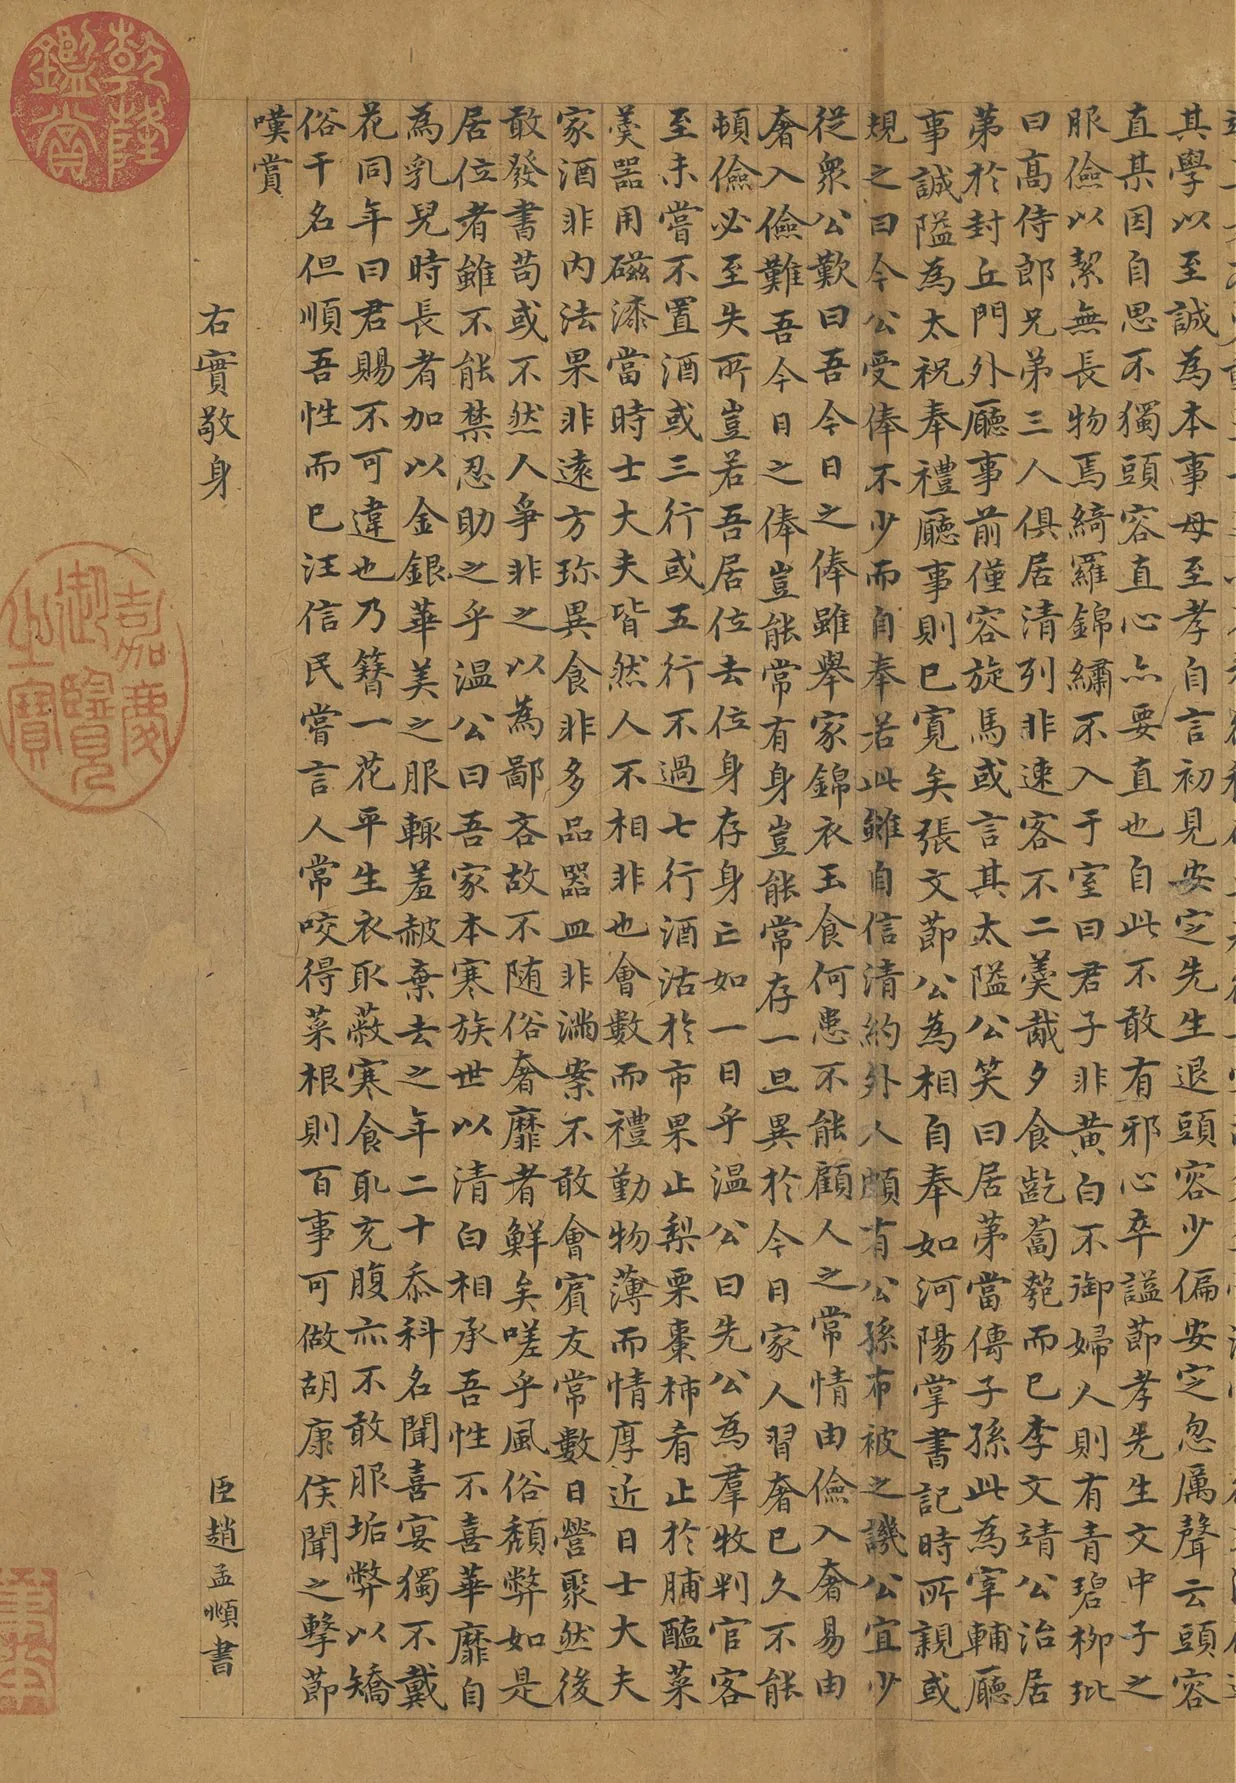 其學以至誠為本事母至孝自言初見安定先生退頭容少偏安定忽厲聲云頭容
直某因自思不獨頭容直心亦要直也自此不敢有邪心卒謚節孝先生文中子之
服儉以絜無長物焉綺羅錦繡不入于室曰君子非黃白不御婦人則有青碧柳玭
曰高侍郎兄弟三人俱居清列非速客不二羹胾夕食齕蔔匏而已李文靖公治居
第於封丘門外廳事前僅容旋馬或言其太隘公笑曰居第當傳子孫此為宰輔廳
事誠隘為太祝奉禮廳事則已寬矣張文節公為相自奉如河陽掌書記時所親或
規之曰今公受俸不少而自奉若此雖自信清約外人頗有公孫布被之譏公宜少
從衆公歎曰吾今日之俸雖舉家錦衣玉食何患不能顧人之常情由儉入奢易由
奢入儉難吾今日之俸豈能常有身豈能常存一旦異於今日家人習奢已久不能
頓儉必至失所豈若吾居位去位身存身亡如一日乎溫公曰先公為羣牧判官客
至未嘗不置酒或三行或五行不過七行酒沽於市果止梨栗棗柿肴止於脯醢菜
羹器用磁漆當時士大夫皆然人不相非也會數而禮勤物薄而情厚近日士大夫
家酒非內法果非遠方珍異食非多品器皿非滿案不敢會賓友常數日營聚然後
敢發書苟或不然人爭非之以為鄙吝故不隨俗奢靡者鮮矣嗟乎風俗頹弊如是
居位者雖不能禁忍助之乎溫公曰吾家本寒族世以清白相承吾性不喜華靡自
為乳兒時長者加以金銀華美之服輒羞赧棄去之年二十忝科名聞喜宴獨不戴
花同年曰君賜不可違也乃簪一花平生衣取蔽寒食取充腹亦不敢服垢弊以矯
俗干名但順吾性而已汪信民嘗言人常咬得菜根則百事可做胡康侯聞之擊節
嘆賞
右實敬身
臣趙孟頫書
乾隆鑑賞
嘉慶御覽之寶